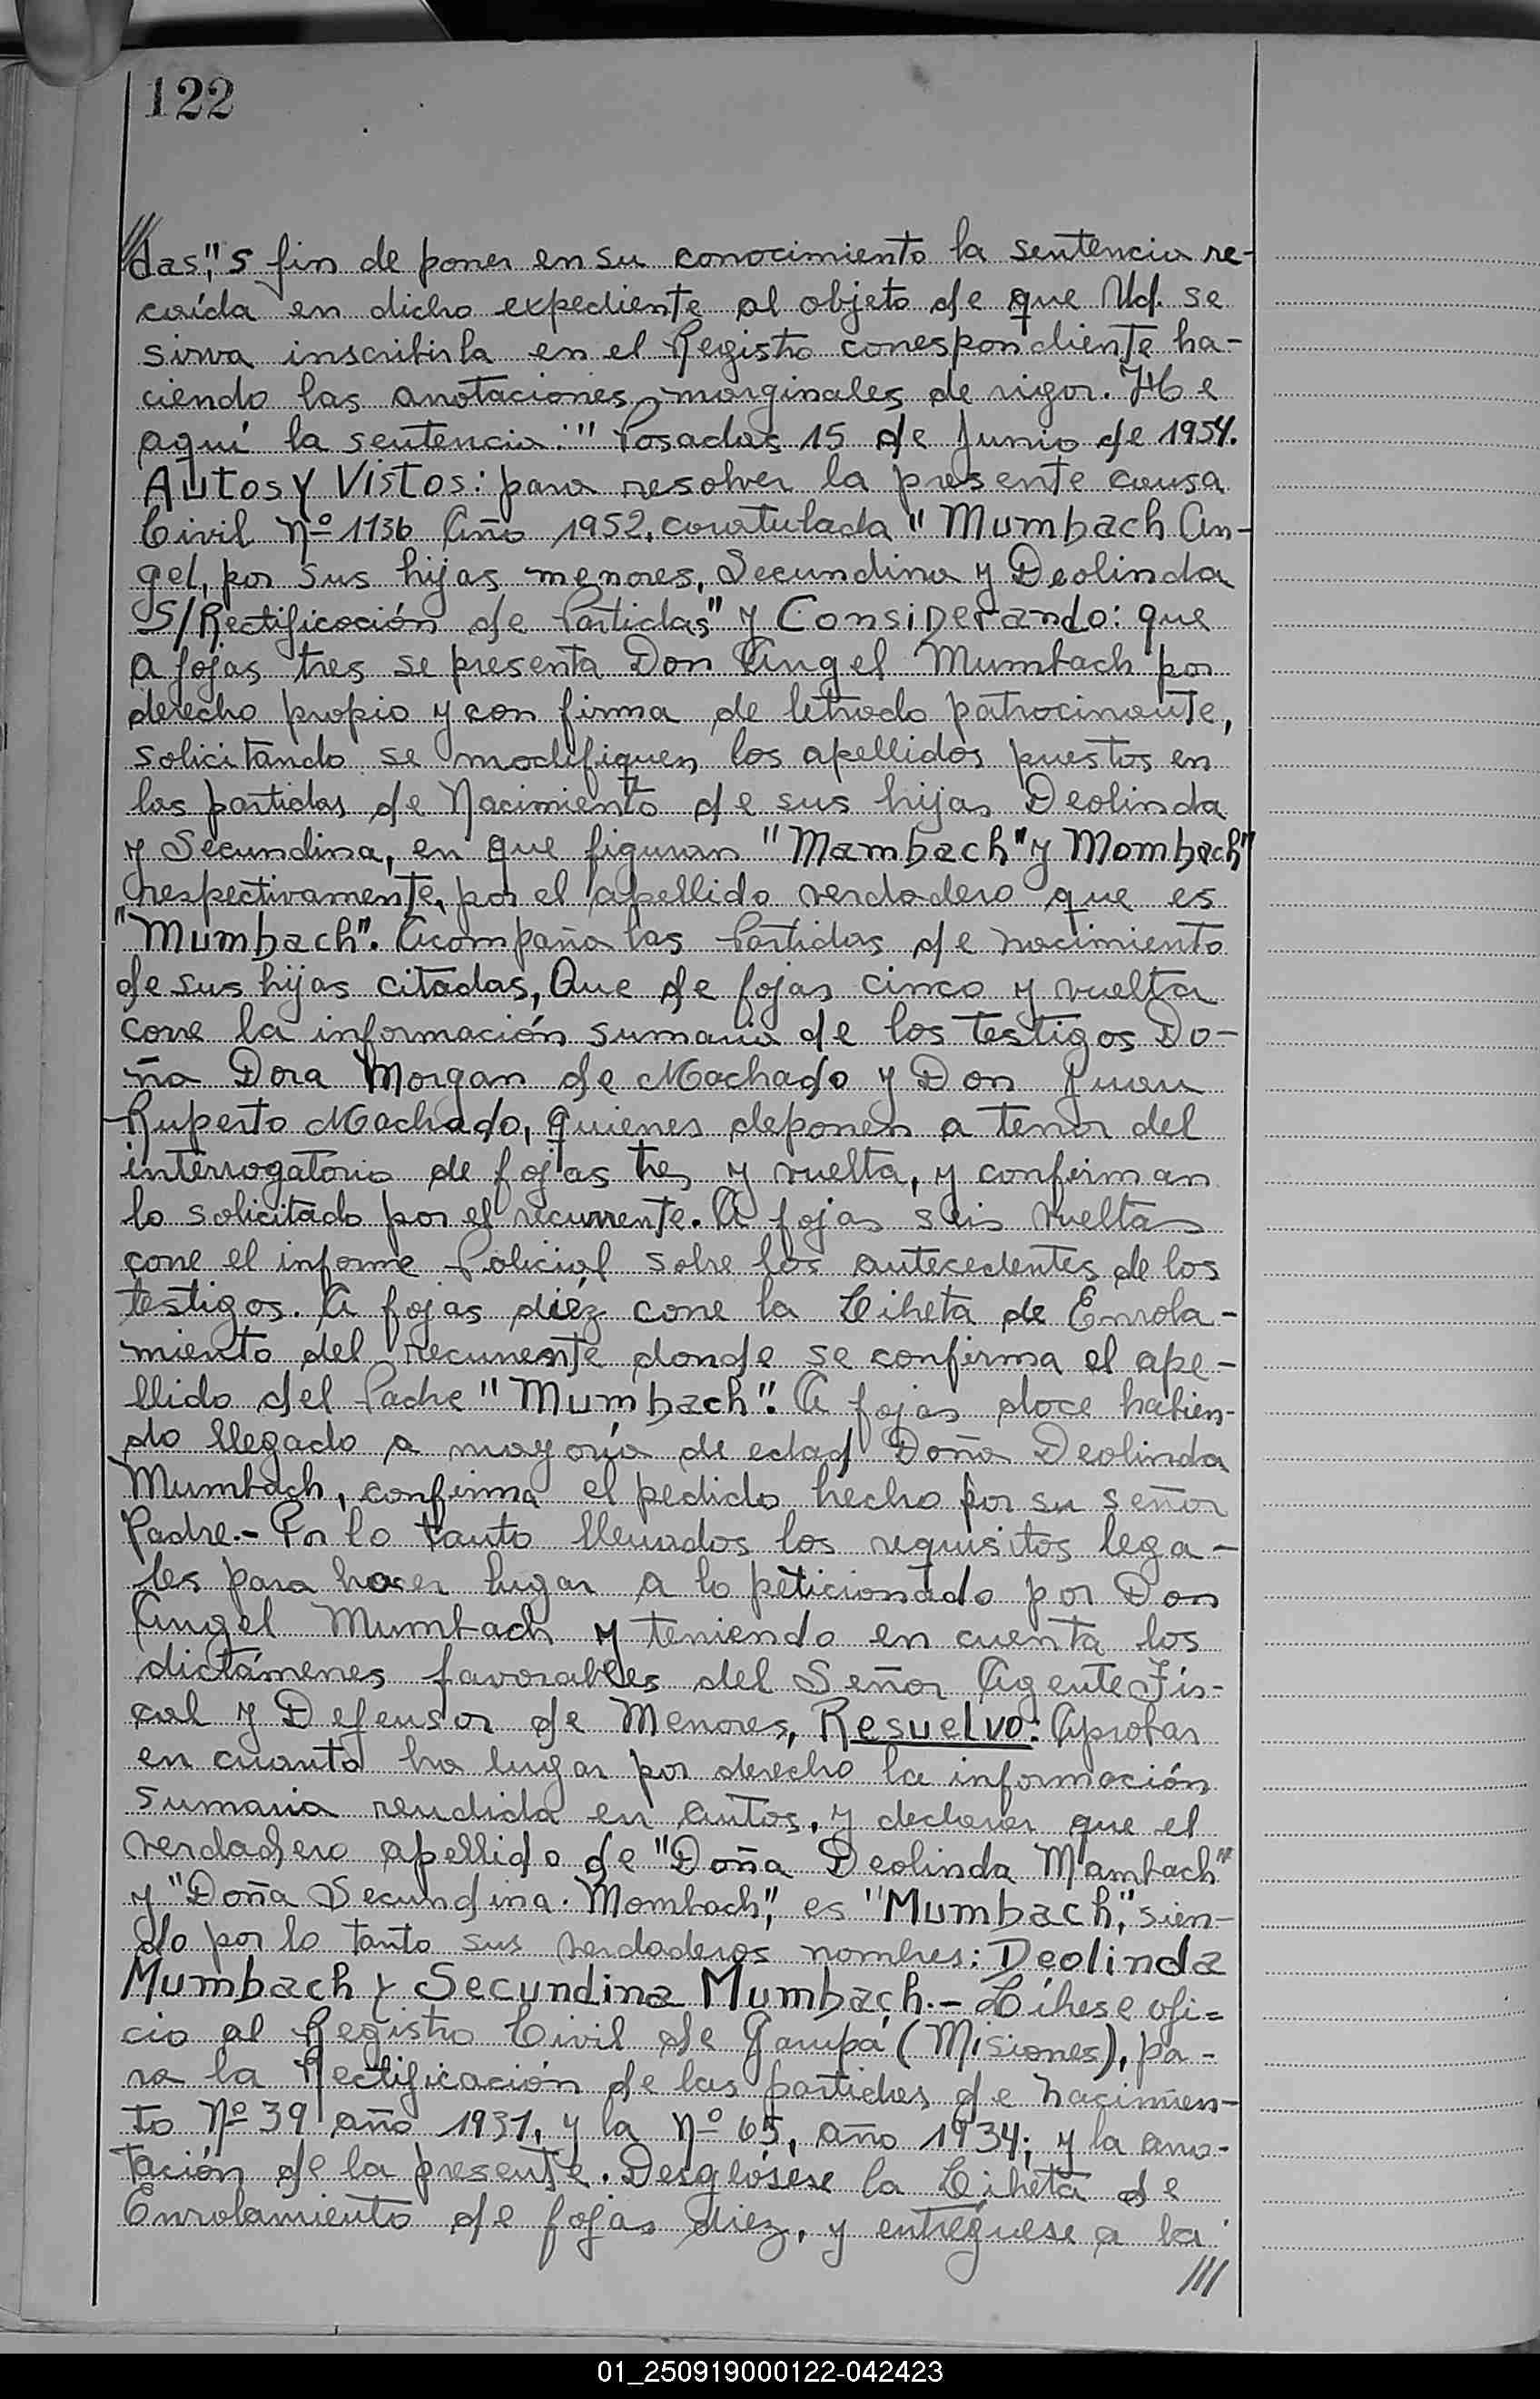 122
///das", s fin de poner en su conocimiento la sentencia re-
caída en dicho expediente al objeto de que Ud. se
sirva inscribirla en el Registro correspondiente ha-
ciendo las anotaciones marginales de rigor. He
aquí la sentencia: " Posadas 15 de Junio de 1954.
Autos y Vistos: para resolver la presente causa
Civil Nº 1136 Año 1952, caratulada "Mumbach An-
gel, por sus hijas menores, Secundina y Deolinda
S/Rectificación de Partidas" y Considerando: que
a fojas tres se presenta Don Angel Mumbach por
derecho propio y con firma de letrado patrocinante,
solicitando se modifiquen los apellidos puestos en
las partidas de Nacimiento de sus hijas Deolinda
y Secundina, en que figuran "Mambach" y Mombach"
respectivamente, por el apellido verdadero que es
"Mumbach". Acompaña las Partidas de nacimiento
de sus hijas citadas, Que de fojas cinco y vuelta
corre la información sumaria de los testigos Do-
ña Dora Morgan de Machado y Don Juan
Ruperto Machado, quienes deponen a tenor del
interrogatorio de fojas tres y vuelta, y confirman
lo solicitado por el recurrente. A fojas seis vueltas
corre el informe Policial sobre los antecedentes de los
testigos. A fojas diéz corre la Libreta de Enrola-
miento del recurrente donde se confirma el ape-
llido del Padre "Mumbach". A fojas doce habien-
do llegado a mayoría de edad Doña Deolinda
Mumbach, confirma el pedido hecho por su señor
Padre.- Por lo tanto llenados los requisitos lega-
les para hacer lugar a lo peticionado por Don
Angel Mumbach y teniendo en cuenta los
dictámenes favorables del Señor Agente Fis-
cal y Defensor de Menores, Resuelvo: Aprobar
en cuanto ha lugar por derecho la información
sumaria rendida en autos, y declarar que el
verdadero apellido de "Doña Deolinda Mambach"
y "Doña Secundina Mombach", es "Mumbach", sien-
do por lo tanto sus verdaderos nombres: Deolinda
Mumbach y Secundina Mumbach.- Líbrese ofi=
cio al Registro Civil de Garupá (Misiones), pa-
ra la Rectificación de las partidas de nacimien-
to Nº 39 año 1931, y la Nº 65, año 1934; y la ano-
tación de la presente. Desglósese la Libreta de
Enrolamiento de fojas diez, y entréguese a la
///
01_250919000122-042423